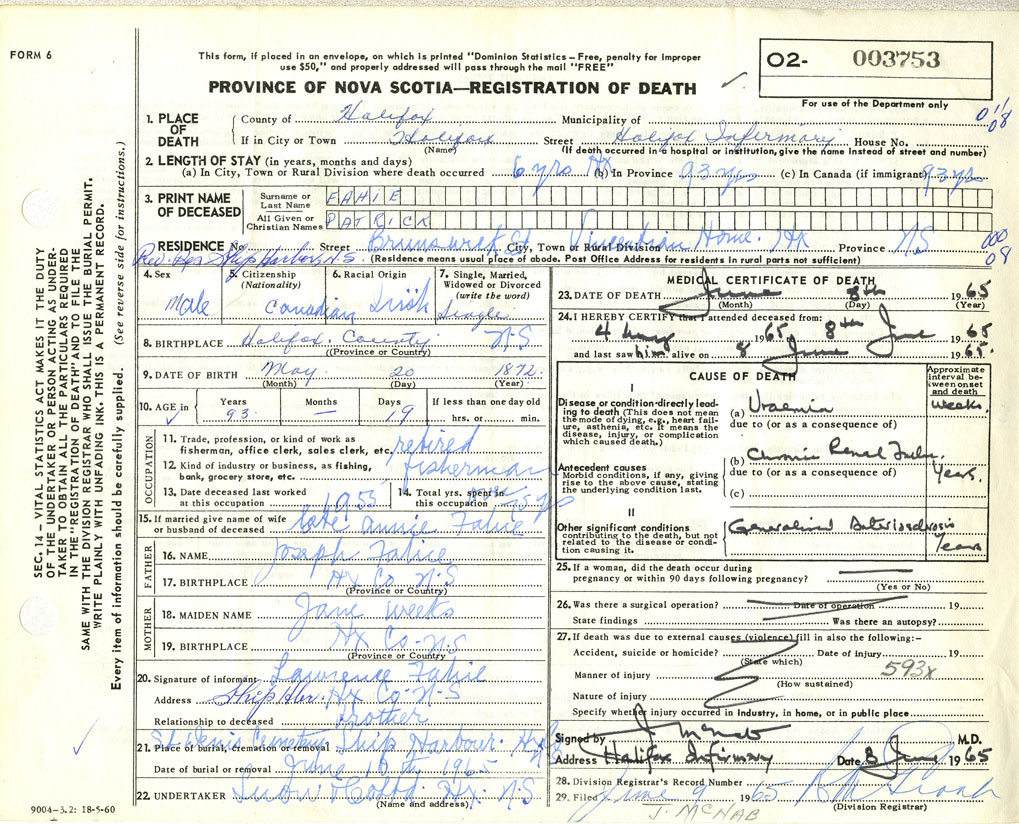 FORM 6
This form, if placed in an envelope, on which is printed "Dominion Statistics – Free, penalty for improper
use $50," and properly addressed will pass through the mail "FREE"
PROVINCE OF NOVA SCOTIA—REGISTRATION OF DEATH
O2- 003753
For use of the Department only
1. PLACE OF DEATH
County of Halifax Municipality of
If in City or Town Halifax Street Halifax Infirmary House No.
(Name) (If death occurred in a hospital or institution, give the name instead of street and number)
2. LENGTH OF STAY (in years, months and days)
(a) In City, Town or Rural Division where death occurred 6 yrs Hx (b) In Province 93 yrs (c) In Canada (if immigrant) 93 yrs
3. PRINT NAME OF DECEASED
Surname or Last Name FAHIE
All Given or Christian Names PATRICK
RESIDENCE No. Street Brunswick St City, Town or Rural Division Vincentian Home. Hx Province N-S
Ship Harbor, N.S. (Residence means usual place of abode. Post Office Address for residents in rural parts not sufficient)
4. Sex
Male
5. Citizenship
(Nationality)
Canadian
6. Racial Origin
Irish
7. Single, Married,
Widowed or Divorced
(write the word)
Single
8. BIRTHPLACE Halifax County N-S
(Province or Country)
9. DATE OF BIRTH May 20 1872
(Month) (Day) (Year)
10. AGE in Years Months Days If less than one day old
93 – 19 hrs. or min.
OCCUPATION
11. Trade, profession, or kind of work as
fisherman, office clerk, sales clerk, etc. retired
12. Kind of industry or business, as fishing,
bank, grocery store, etc. fisherman
13. Date deceased last worked
at this occupation 1955
14. Total yrs. spent in
this occupation
15. If married give name of wife
or husband of deceased late Annie Fahie
FATHER
16. NAME Joseph Fahie
17. BIRTHPLACE Hx Co N-S
(Province or Country)
MOTHER
18. MAIDEN NAME Jane Weeks
19. BIRTHPLACE Hx Co-N-S
(Province or Country)
20. Signature of informant Lawrence Fahie
Address Ship Hbr. Hx Co-N-S
Relationship to deceased Brother
21. Place of burial, cremation or removal Ship Harbour. Hx
Date of burial or removal June 10th 1965
22. UNDERTAKER Snow Hx. N-S
(Name and address)
9004–3.2: 18-5-60
SEC. 14 – VITAL STATISTICS ACT MAKES IT THE DUTY
OF THE UNDERTAKER OR PERSON ACTING AS UNDER-
TAKER TO OBTAIN ALL THE PARTICULARS REQUIRED
IN THE "REGISTRATION OF DEATH" AND TO FILE THE
SAME WITH THE DIVISION REGISTRAR WHO SHALL ISSUE THE BURIAL PERMIT.
WRITE PLAINLY WITH UNFADING INK. THIS IS A PERMANENT RECORD.
Every item of information should be carefully supplied. (See reverse side for instructions.)
MEDICAL CERTIFICATE OF DEATH
23. DATE OF DEATH June 8th 1965
(Month) (Day) (Year)
24. I HEREBY CERTIFY that I attended deceased from:
4 1965 8th June 1965
and last saw him alive on 8 June 1965.
CAUSE OF DEATH
Approximate
interval be-
tween onset
and death
I
Disease or condition directly lead-
ing to death (This does not mean
the mode of dying, e.g., heart fail-
ure, asthenia, etc. It means the
disease, injury, or complication
which caused death.)
(a) Uraemia weeks.
due to (or as a consequence of)
Antecedent causes
Morbid conditions, if any, giving
rise to the above cause, stating
the underlying condition last.
(b) Chronic Renal Years.
due to (or as a consequence of)
(c)
II
Other significant conditions
contributing to the death, but not
related to the disease or condi-
tion causing it.
Generalized Arteriosclerosis
Years
25. If a woman, did the death occur during
pregnancy or within 90 days following pregnancy?
(Yes or No)
26. Was there a surgical operation? Date of operation 19
State findings Was there an autopsy?
27. If death was due to external causes (violence) fill in also the following:–
Accident, suicide or homicide? Date of injury 19
(State which)
Manner of injury 593x
(How sustained)
Nature of injury
Specify whether injury occurred in industry, in home, or in public place
Signed by J McNab M.D.
Address Halifax Infirmary Date 8 June 1965
28. Division Registrar's Record Number
29. Filed June 9 1965
(Division Registrar)
J. MCNAB